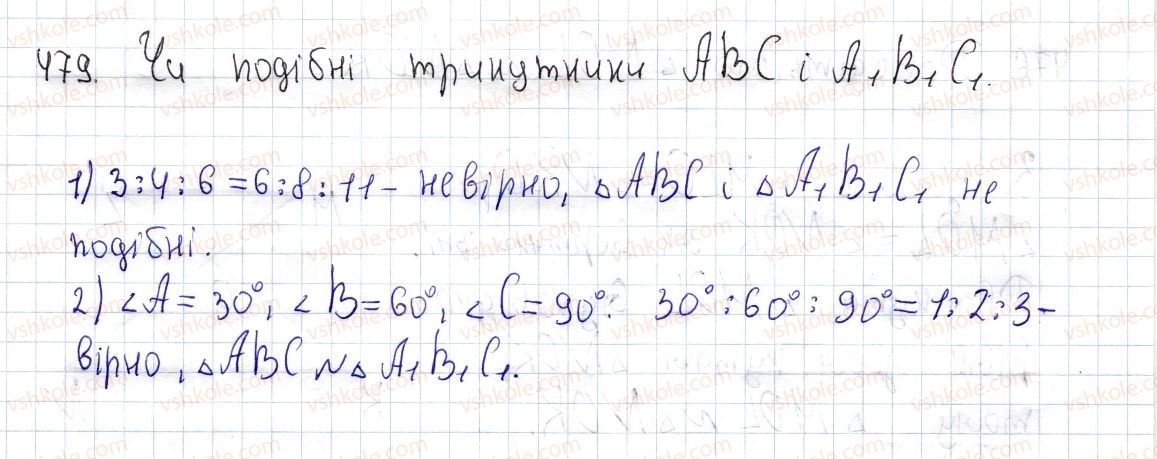 479. Чи подібні трикутники ABC і A₁B₁C₁.
1) 3:4:6=6:8:11 - невірно, △ABC і △A₁B₁C₁ не
подібні.
2) ∠A=30°, ∠B=60°, ∠C=90°: 30°:60°:90°=1:2:3 -
вірно, △ABC ∾ △A₁B₁C₁.